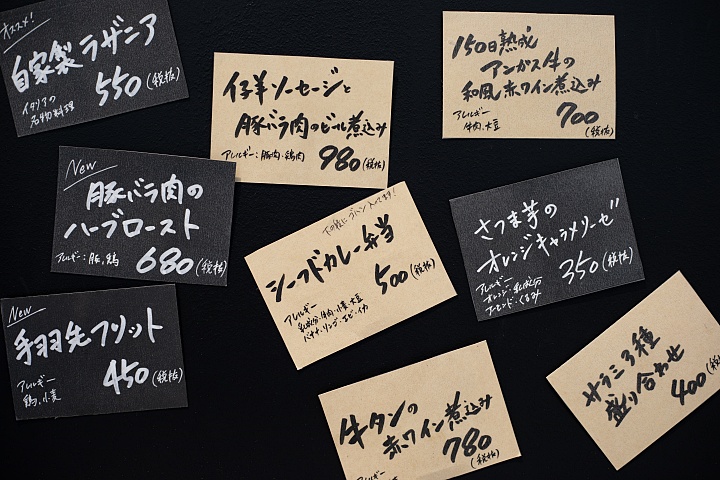 オススメ!
自家製ラザニア
550(税抜)
イタリアの
名物料理
仔羊ソーセージと
豚バラ肉のビール煮込み
アレルギー:豚肉・鶏肉
980(税抜)
150日熟成
アンガス牛の
和風赤ワイン煮込み
アレルギー
牛肉、大豆
700
(税抜)
New
豚バラ肉の
ハーブロースト
アレルギー:豚、鶏
680(税抜)
下の段にゴハン入ってます!
シーフドカレー弁当
500(税抜)
アレルギー
乳成分・牛肉・小麦・大豆
バナナ・リンゴ・エビ・イカ
さつま芋の
オレンジキャラメリーゼ
アレルギー
オレンジ・乳成分
アーモンド・くるみ
350(税抜)
New
手羽先フリット
450(税抜)
アレルギー
鶏、小麦
牛タンの
赤ワイン煮込み
780
(税抜)
アレルギー
サラミ3種
盛り合わせ
400(税抜)